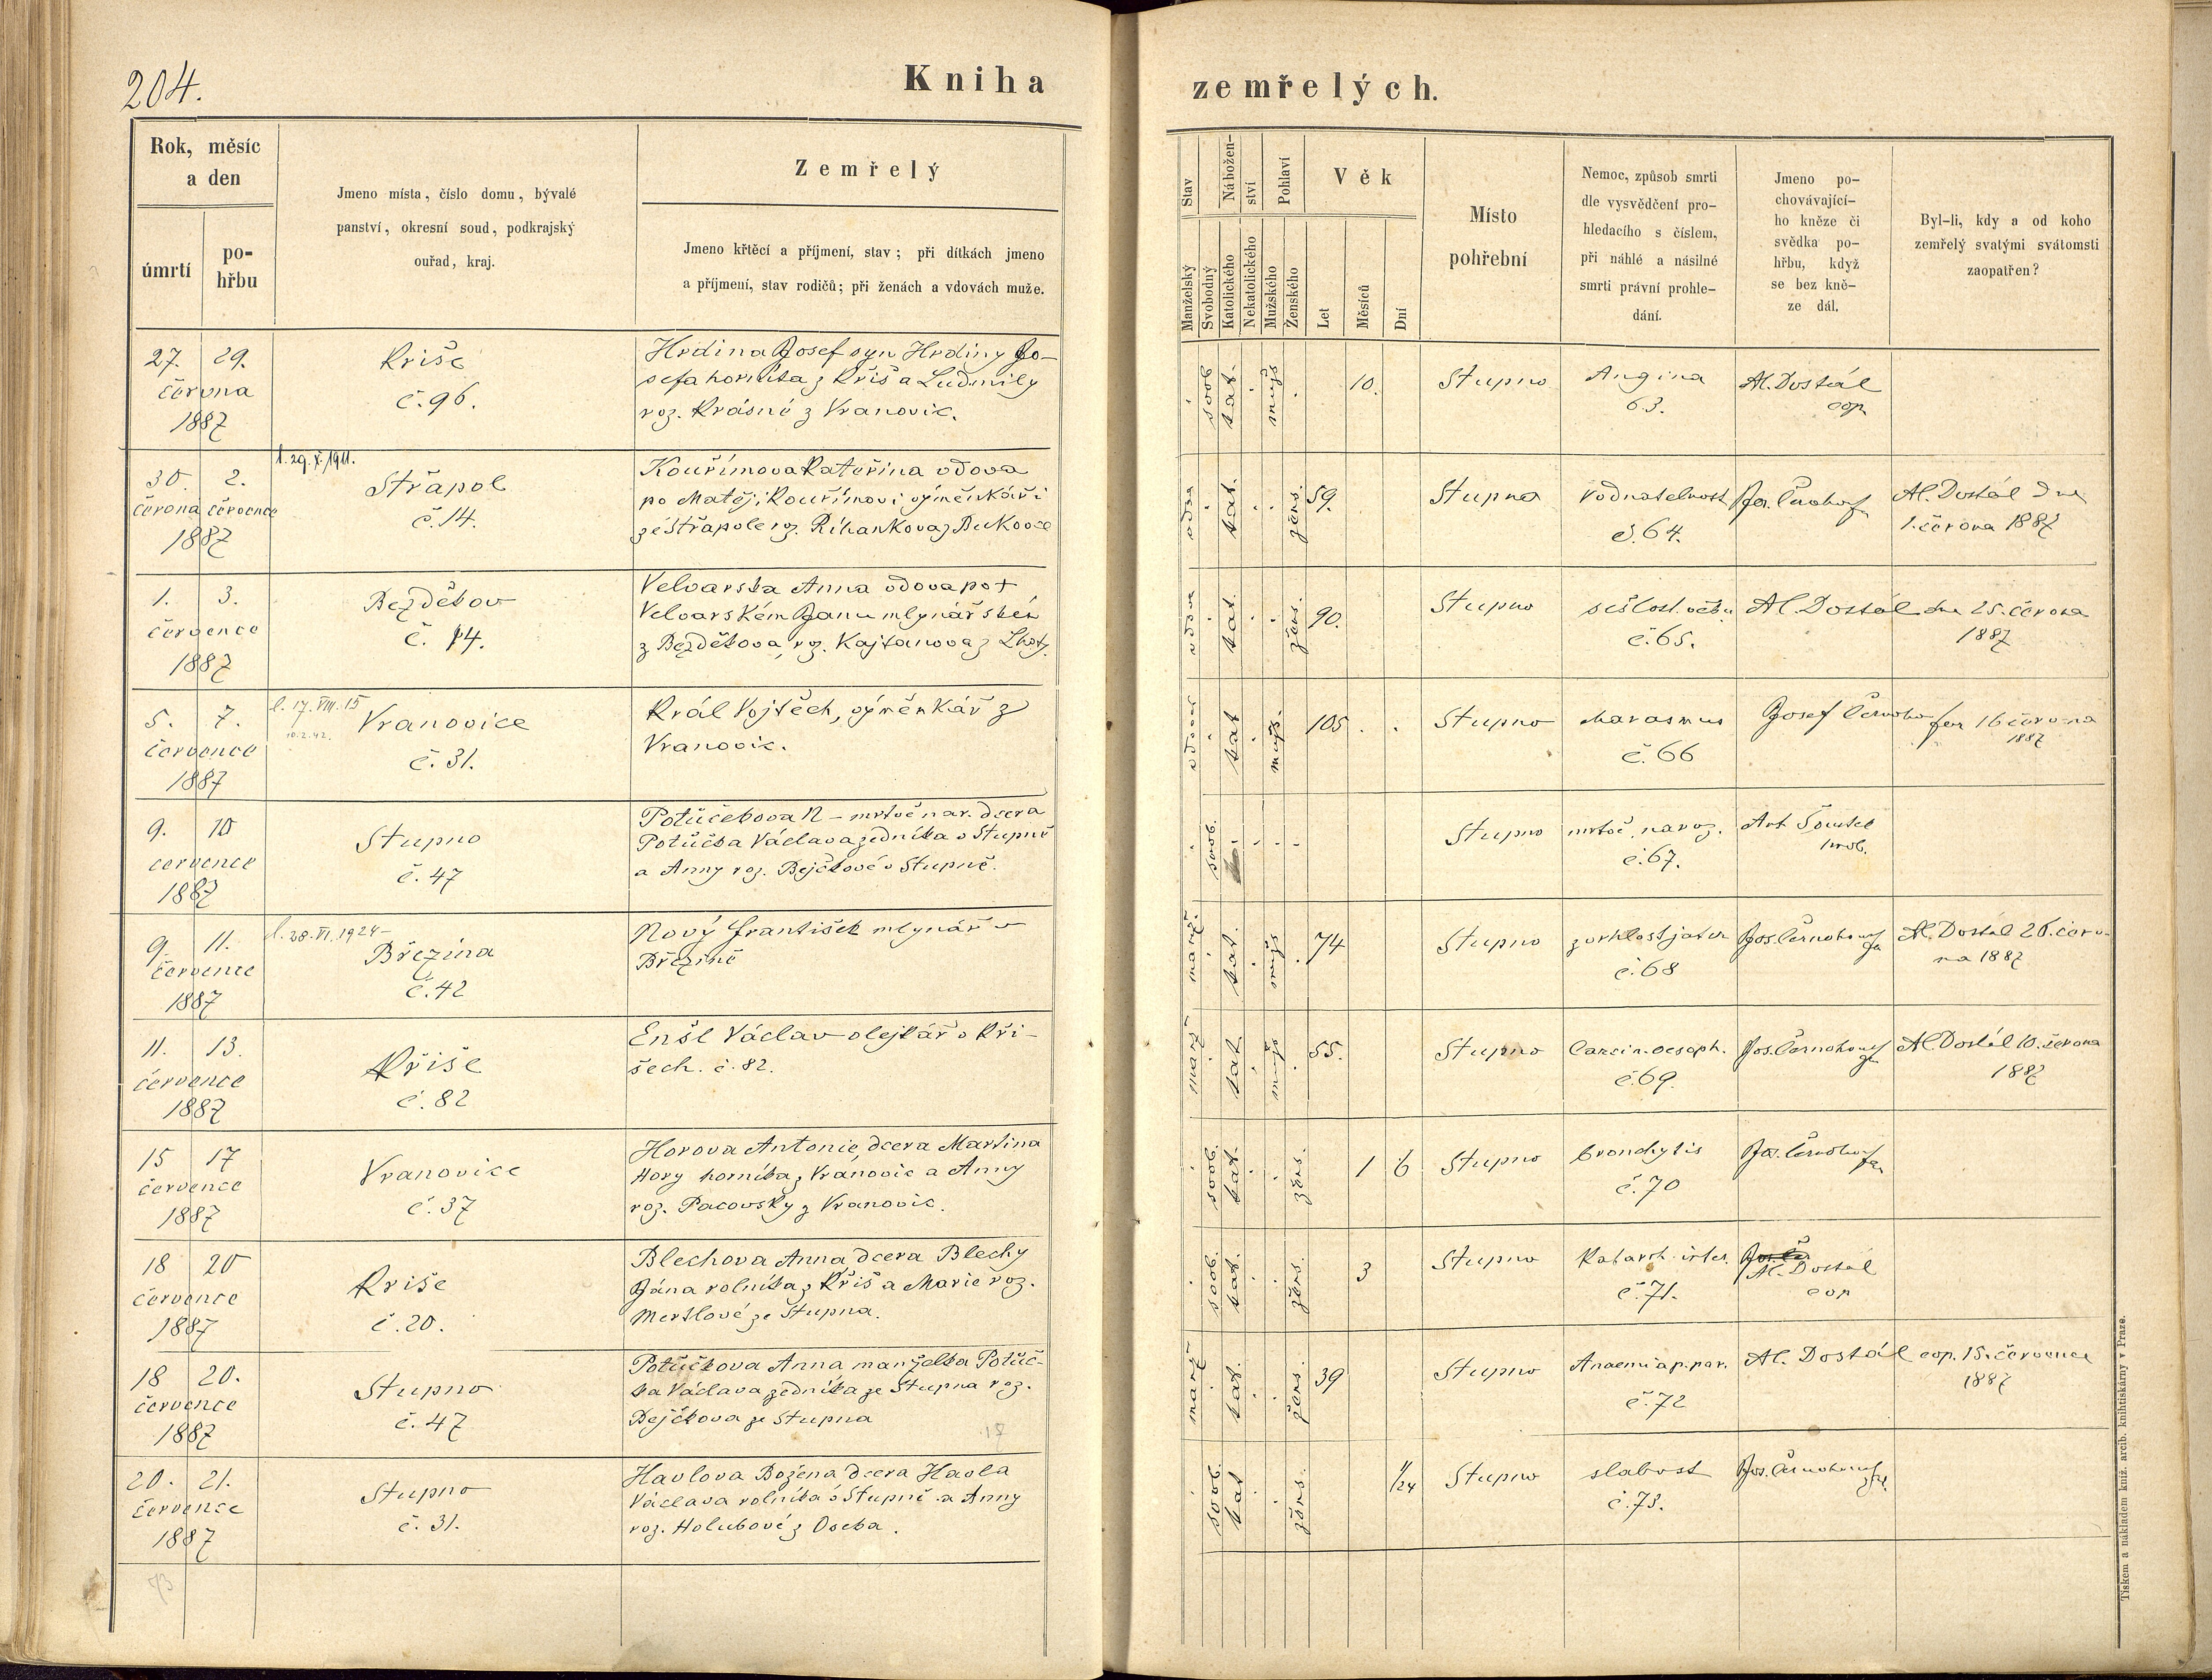 204.
Kniha zemřelých.
Rok, měsíc
a den
úmrtí
po-
hřbu
Jmeno místa, číslo domu, bývalé
panství, okresní soud, podkrajský
ouřad, kraj.
Zemřelý
Jmeno křtěcí a příjmení, stav; při dítkách jmeno
a příjmení, stav rodičů; při ženách a vdovách muže.
Stav
Manželský
Svobodný
Nábožen-
ství
Katolického
Nekatolického
Pohlaví
Mužského
Ženského
Věk
Let
Měsíců
Dní
Místo
pohřební
Nemoc, způsob smrti
dle vysvědčení pro-
hledacího s číslem,
při náhlé a násilné
smrti právní prohle-
dání.
Jmeno po-
chovávající-
ho kněze či
svědka po-
hřbu, když
se bez kně-
ze dál.
Byl-li, kdy a od koho
zemřelý svatými svátomsti
zaopatřen?
27. 29.
června
1887
Kriše
č. 96.
Hrdina Josef syn Hrdiny Jo-
sefa horníka z Kříš a Ludmily
roz. Krásné z Vranovic.
svob. kat. muž. 10.
Stupno
Angina
63.
Al. Dostál
cop.
30. 2.
června července
1887
l. 29. X. 1911.
Střapol
č. 14.
Kouřímova Kateřina vdova
po Matěji Kouřímovi výměnkáři
ze Střapole roz. Říhankova z Bukovce
vdova kat. žens. 59.
Stupno
vodnatelnost
č. 64.
Jos. Černohous
far.
Al. Dostál dne
1. června 1887
1. 3.
července
1887
Bezděkov
č. 14.
Velvarska Anna vdova po +
Velvarském Janu mlynářském
z Bezděkova, roz. Kajtanova z Lhoty.
vdova kat. žens. 90.
Stupno
sešlost věku
č. 65.
Al. Dostál dne 25. června
1887
5. 7.
července
1887
l. 17. VIII. 15
10.2.42.
Vranovice
č. 31.
Král Vojtěch, výměnkář z
Vranovic.
vdovec kat. muž. 105
Stupno
marasmus
č. 66
Josef Černohous far 16 června
1887
9. 10
července
1887
Stupno
č. 47
Potůčkova N – mrtvě nar. dcera
Potůčka Václava zedníka v Stupně
a Anny roz. Bejčkové v Stupně.
svob.
Stupno
mrtvě naroz.
č. 67.
Ant. Soustel
hrob.
9. 11.
července
1887
l. 28. VI. 1924
Březina
č. 42
Nový František mlynář v
Březině
manž. kat. muž 74
Stupno
zvrhlost jater
č. 68
Jos. Černohous
far
Al. Dostál 26. červ-
na 1887
11. 13.
července
1887
Kříše
č. 82
Enšl Václav olejkář v Kří-
šech. č. 82.
manž kat. muž 55.
Stupno
Carcin. oesoph.
č. 69.
Jos. Černohous
far
Al. Dostál 10. června
1887
15 17
července
1887
Vranovice
č. 37
Horova Antonie, dcera Martina
Hory horníka z Vranovic a Anny
roz. Pacovsky z Vranovic.
svob. kat. žens. 1 6
Stupno
bronchytis
č. 70
Jos. Černohous
far
18 20
července
1887
Kriše
č. 20.
Blechova Anna, dcera Blechy
Jána rolníka z Kříš a Marie roz.
Mertlové ze Stupna.
svob. kat. žens. 3
Stupno
Katarrh. inter.
č. 71.
Al. Dostál
cop
18 20.
července
1887
Stupno
č. 47
Potůčkova Anna manželka Potůč-
ka Václava zedníka ze Stupna roz.
Bejčkova ze Stupna
manž kat. žens. 39
Stupno
Anaemia p. par.
č. 72
Al. Dostál cop. 15. července
1887
20. 21.
července
1887
Stupno
č. 31.
Havlova Božena dcera Havla
Václava rolníka v Stupně a Anny
roz. Holubové z Oseka.
svob. kat žens. 1/24
Stupno
slabost
č. 73.
Jos. Černohous
far.
73
Tiskem a nákladem kníž. arcib. knihtiskárny v Praze.